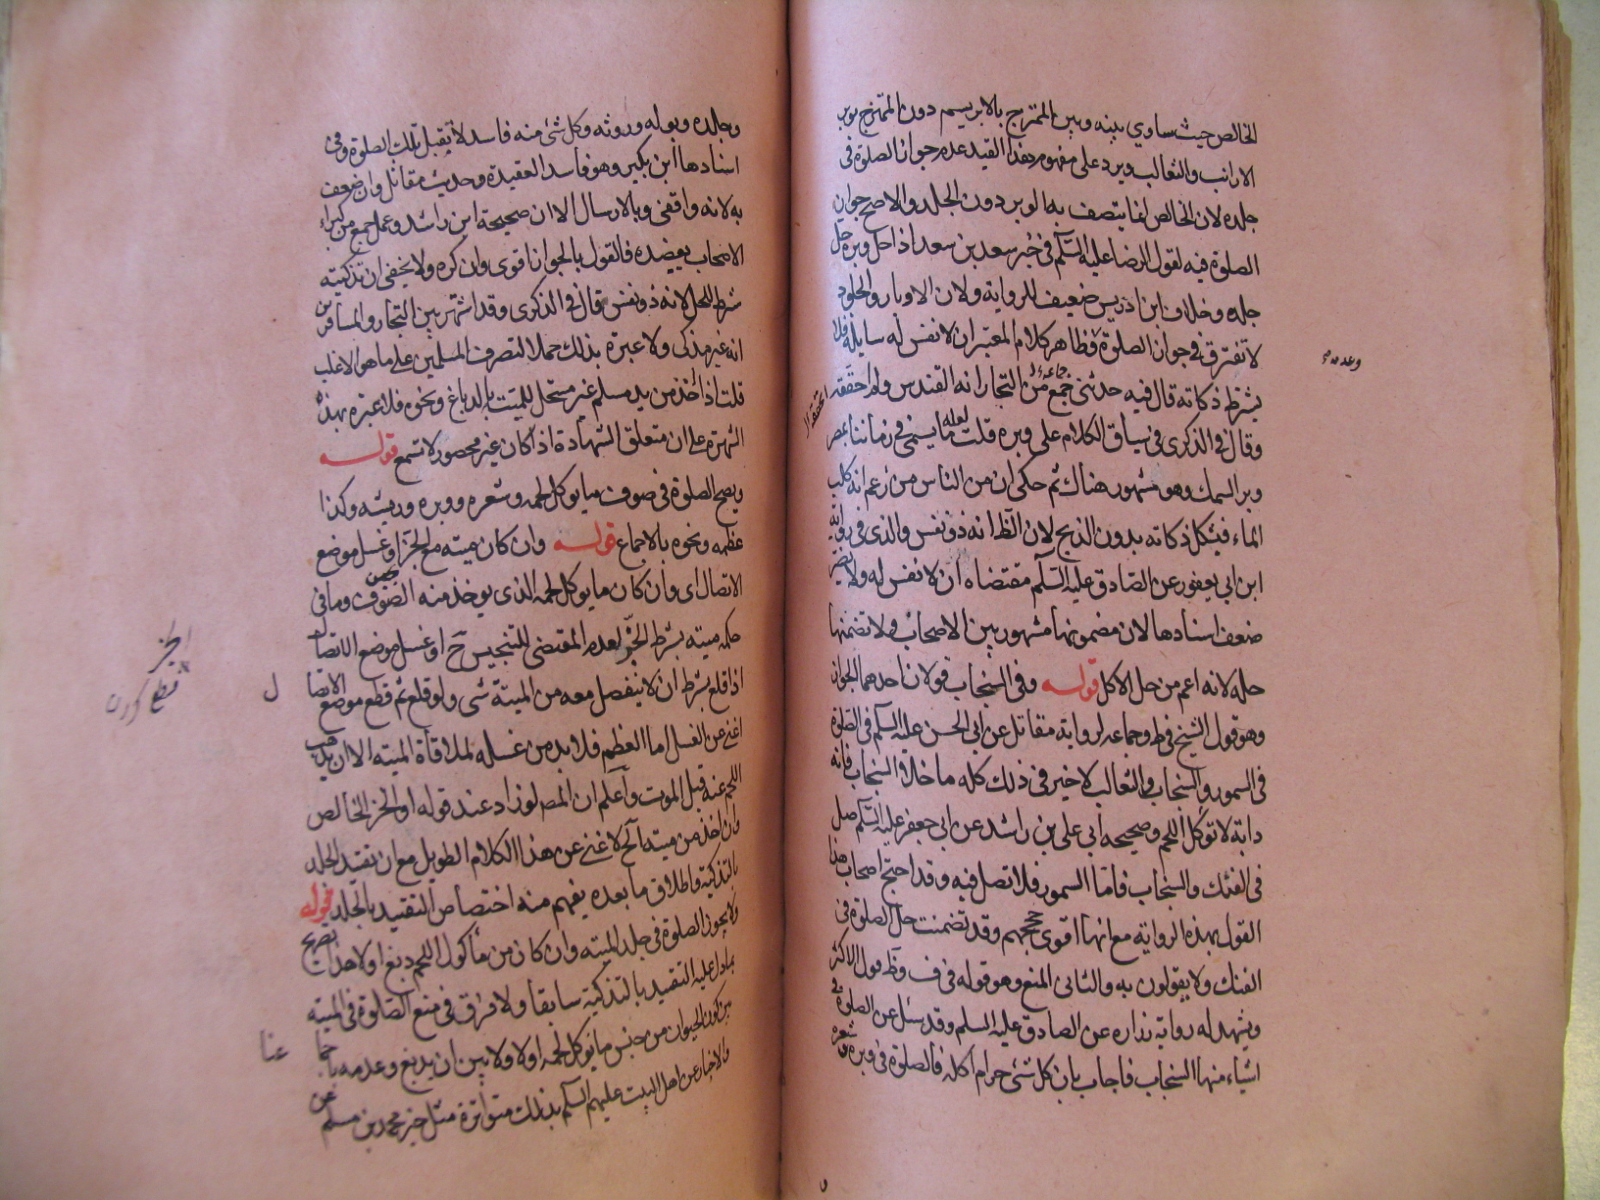 الخالص حيث ساوي بينه وبين الممتزج بالابريسم دون الممتزج بوبر
الارانب والثعالب ويرد على مفهوم هذا القيد عدم جواز الصلوة فى
جلده لان الخالص انما يتصف به الوبر دون الجلد والاصح جواز
الصلوة فيه لقول الرضا عليه السلم في خبر سعد بن سعد اذا حل وبره حل
جلده وخلاف ابن ادريس ضعيف للرواية ولان الاوبار والجلود
لا تفترق في جواز الصلوة وظاهر كلام المعتبر ان لا نفس له سايله فلا
وعدمه
يشترط ذكاته قال فيه حدثني جماعة من التجار انه القندس ولم اتحققه
وقال في الذكرى في سياق الكلام على وبره قلت لعله ما يسمى في زماننا بمصر
وبر السمك وهو مشهور هناك ثم حكى ان من الناس من زعم انه كلب
الماء فيشكل ذكاته بدون الذبح لان الظ انه ذو نفس والذى في رواية
ابن ابى يعفور عن الصادق عليه السلم مقتضاه ان لا نفس له ولا يضر
ضعف اسنادها لان مضمونها مشهور بين الاصحاب ولا تضمنها
حله لانه اعم من حل الاكل قوله وفى السنجاب قولان احدهما الجواز
وهو قول الشيخ في ط وجماعة لرواية مقاتل عن ابى الحسن عليه السلم في الصلوة
فى السمور والسنجاب والثعالب لا خير فى ذلك كله ما خلا السنجاب فانه
دابة لا توكل اللحم وصحيحه أبي على بن راشد عن ابى جعفر عليه السلم صل
فى الفنك والسنجاب فاما السمور فلا تصل فيه وقد احتج اصحاب هذا
القول بهذه الرواية مع انها اقوى حججهم وقد تضمنت حل الصلوة فى
الفنك ولا يقولون به والثانى المنع وهو قوله فى ف وظ قول الاكثر
ويشهد له رواية زراره عن الصادق عليه السلم وقد سئل عن الصلوة فى
اشياء منها السنجاب فاجاب بان كل شئ حرام اكله فالصلوة فى وبره وشعره
وجلده وبوله وروثه وكل شئ منه فاسد لا يقبل تلك الصلوة وفى
اسنادها ابن بكير وهو فاسد العقيدة وحديث مقاتل وان ضعف
به لانه واقفى وبالارسال الا ان صحيحة ابن راشد وعمل جمع من كبراء
الاصحاب يعضده فالقول بالجواز اقوى وان كره ولا يخفى ان تذكيته
شرط للحل لانه ذو نفس قال في الذكرى وقد اشتهر بين التجار والمسافرين
انه غير مذكى ولا عبرة بذلك حملا لتصرف المسلمين على ما هو الاغلب
قلت اذا اخذ من يد مسلم غير مستحل للميت بالدباغ ونحوه فلا عبرة بهذه
الشهرة على ان متعلق الشهادة اذا كان غير محصور لا تسمع قوله
ويصح الصلوة فى صوف ما يوكل لحمه وشعره ووبره وريشه وكذا
عظمه ونحوه بالاجماع قوله وان كان ميته مع الجز او غسل موضع
الاتصال اى وان كان ما يوكل لحمه الذى يوخذ منه الصوف وما فى
حكمه ميته بشرط الجز لعدم المقتضى للتنجيس ح او غسل موضع الاتصال
اذا قلع بشرط ان لا ينفصل معه من الميتة شى ولو قلع ثم قطع موضع الاتصال
اغنى عن الغسل اما العظم فلا بد من غسله لملاقاة الميته الا ان يذهب
اللحم عنه قبل الموت واعلم ان المص لو زاد عند قوله او الخز الخالص
وان اخذ من ميته الخ لاغنى عن هذا الكلام الطويل مع ان تقيد الجلد
بالتذكية واطلاق ما بعده يفهم منه اختصاص التقييد بالجلد قوله
ولا يجوز الصلوة فى جلد الميته وان كان من مأكول اللحم دبغ او لا هذا تصريح
بما دل عليه التقييد بالتذكية سابقا ولا فرق فى منع الصلوة فى الميته
بين كون الحيوان من جنس ما يوكل لحمه او لا ولا بين ان يدبغ وعدمه باجماعنا
والاخبار عن اهل البيت عليهم السلم بذلك متواترة مثل خبر محمد بن مسلم عن
الجز